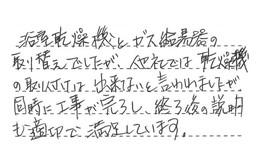 浴室乾燥機とガス給湯器の
取り替えでしたが、他社では乾燥機
の取り付けは出来ないと言われましたが
同時に工事が完了し、終了後の説明
も適切で満足しています。